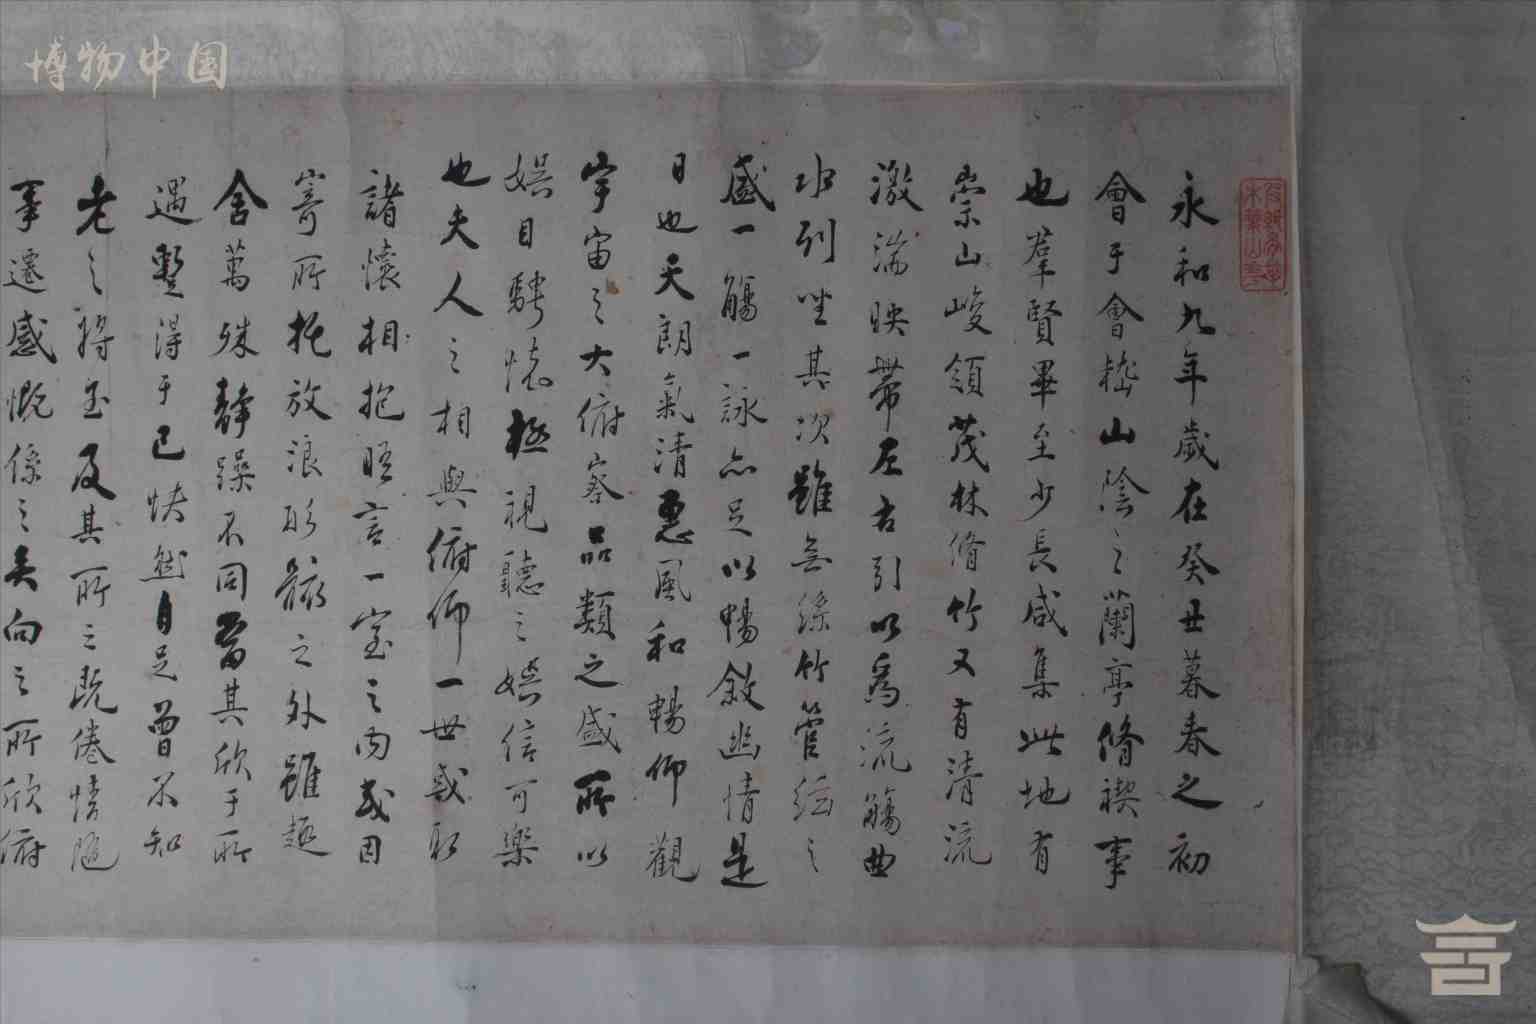 博物中国
永和九年歲在癸丑暮春之初
會于會嵇山陰之蘭亭脩禊事
也羣賢畢至少長咸集此地有
崇山峻領茂林脩竹又有清流
激湍映帶左右引以為流觴曲
水列坐其次雖無絲竹管絃之
盛一觴一詠亦足以暢敘幽情是
日也天朗氣清惠風和暢仰觀
宇宙之大俯察品類之盛所以
娛目騁懷極視聽之娛信可樂
也夫人之相與俯仰一世或取
諸懷相抱晤言一室之內或因
寄所托放浪形骸之外雖趣
舍萬殊靜躁不同當其欣于所
遇暫得于己快然自足曾不知
老之將至及其所之既倦情隨
事遷感慨係之矣向之所欣俯